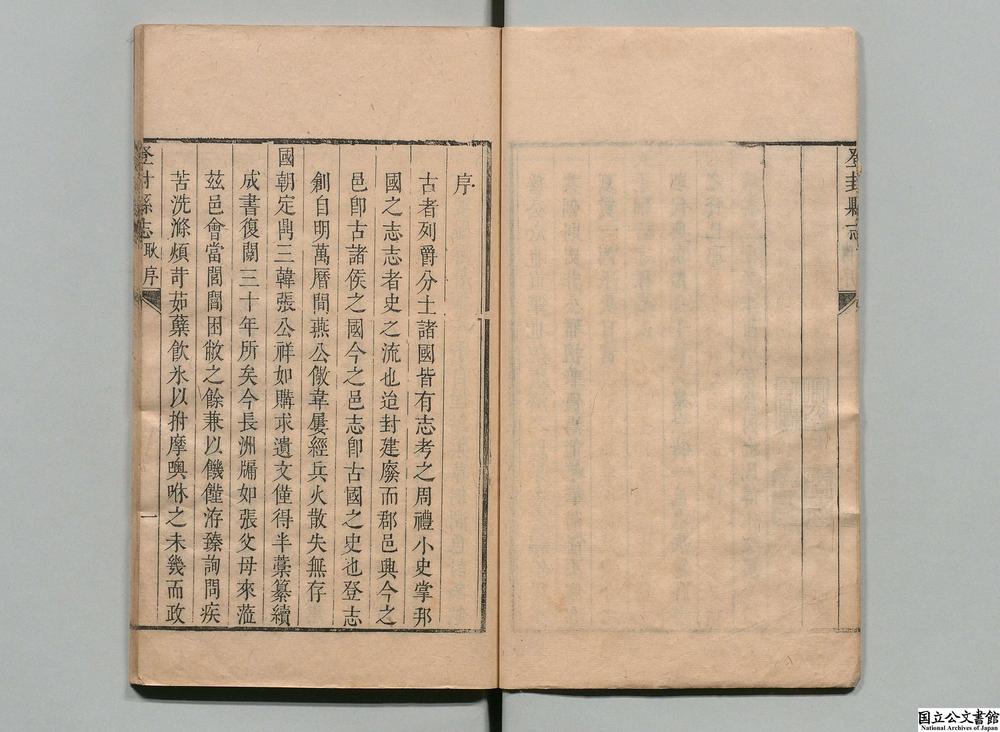 登封縣志
序
古者列爵分土諸國皆有志考之周禮小史掌邦
國之志志者史之流也迨封建廢而郡邑興今之
邑卽古諸侯之國今之邑志卽古國之史也登志
創自明萬曆間燕公儆韋屢經兵火散失無存
國朝定鼎三韓張公祥如購求遺文僅得半藁纂續
成書復閱三十年所矣今長洲牖如張父母來蒞
玆邑會當閭閻困敝之餘兼以饑饉洊臻詢問疾
苦洗滌煩苛茹蘖飮氷以拊摩噢咻之未幾而政
登封縣志 耿序 一
国立公文書館
National Archives of Japan